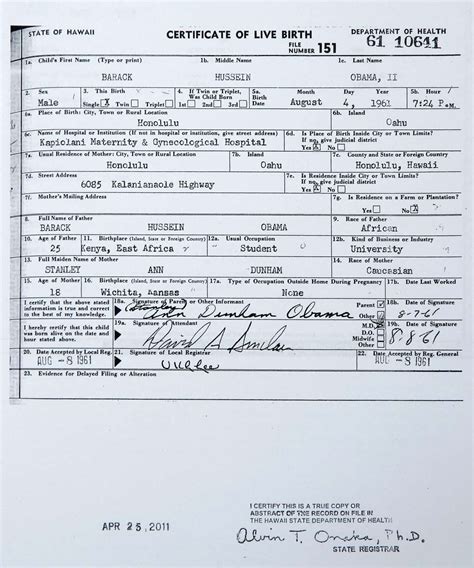 STATE OF HAWAII CERTIFICATE OF LIVE BIRTH DEPARTMENT OF HEALTH
FILE NUMBER 151 61 10641
1a. Child's First Name (Type or print) 1b. Middle Name 1c. Last Name
BARACK HUSSEIN OBAMA, II
2. Sex 3. This Birth 4. If Twin or Triplet, Was Child Born 5a. Birth Date Month Day Year 5b. Hour
Male Single X Twin Triplet 1st 2nd 3rd August 4, 1961 7:24 P.M.
6a. Place of Birth: City, Town or Rural Location 6b. Island
Honolulu Oahu
6c. Name of Hospital or Institution (If not in hospital or institution, give street address) 6d. Is Place of Birth Inside City or Town Limits? If no, give judicial district
Kapiolani Maternity & Gynecological Hospital Yes X No
7a. Usual Residence of Mother: City, Town or Rural Location 7b. Island 7c. County and State or Foreign Country
Honolulu Oahu Honolulu, Hawaii
7d. Street Address 7e. Is Residence Inside City or Town Limits? If no, give judicial district
6085 Kalanianaole Highway Yes X No
7f. Mother's Mailing Address 7g. Is Residence on a Farm or Plantation?
Yes No X
8. Full Name of Father 9. Race of Father
BARACK HUSSEIN OBAMA African
10. Age of Father 11. Birthplace (Island, State or Foreign Country) 12a. Usual Occupation 12b. Kind of Business or Industry
25 Kenya, East Africa Student University
13. Full Maiden Name of Mother 14. Race of Mother
STANLEY ANN DUNHAM Caucasian
15. Age of Mother 16. Birthplace (Island, State or Foreign Country) 17a. Type of Occupation Outside Home During Pregnancy 17b. Date Last Worked
18 Wichita, Kansas None
I certify that the above stated information is true and correct to the best of my knowledge. 18a. Signature of Parent or Other Informant Parent Other 18b. Date of Signature
(Stanley) Ann Dunham Obama 8-7-61
I hereby certify that this child was born alive on the date and hour stated above. 19a. Signature of Attendant M.D. D.O. Midwife Other 19b. Date of Signature
David A Sinclair 8-8-61
20. Date Accepted by Local Reg. 21. Signature of Local Registrar 22. Date Accepted by Reg. General
AUG -8 1961 U K Lee AUG -8 1961
23. Evidence for Delayed Filing or Alteration
APR 25, 2011
I CERTIFY THIS IS A TRUE COPY OR
ABSTRACT OF THE RECORD ON FILE IN
THE HAWAII STATE DEPARTMENT OF HEALTH
Alvin T. Onaka, Ph.D.
STATE REGISTRAR